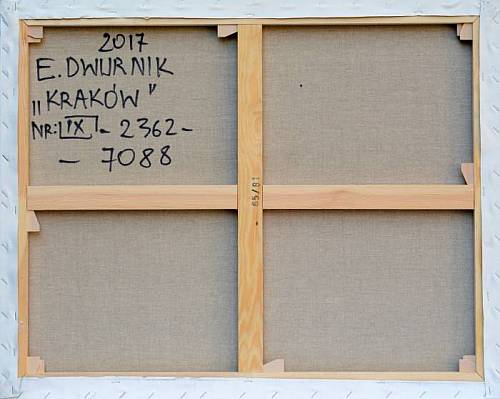 2017
E. DWURNIK
„KRAKÓW"
NR: IX - 2362 -
- 7088
65/81